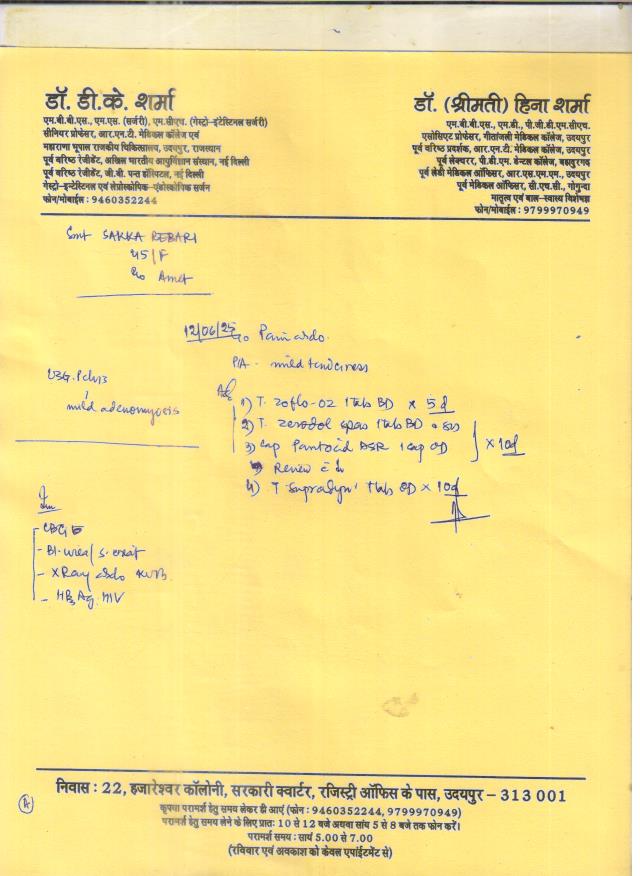 डॉ. डी.के. शर्मा
एम.बी.बी.एस., एम.एस. (सर्जरी), एम.सीएच. (गेस्ट्रो-इंटेस्टिनल सर्जरी)
सीनियर प्रोफेसर, आर.एन.टी. मेडिकल कॉलेज एवं
महाराणा भूपाल राजकीय चिकित्सालय, उदयपुर, राजस्थान
पूर्व वरिष्ठ रेजीडेंट, अखिल भारतीय आयुर्विज्ञान संस्थान, नई दिल्ली
पूर्व वरिष्ठ रेजीडेंट, जी.बी. पन्त हॉस्पिटल, नई दिल्ली
गेस्ट्रो-इन्टेस्टिनल एवं लेप्रोस्कोपिक-एंडोस्कोपिक सर्जन
फोन/मोबाईल : 9460352244
डॉ. (श्रीमती) हिना शर्मा
एम.बी.बी.एस., एम.डी., पी.जी.डी.एम.सीएच.
एसोसिएट प्रोफेसर, गीतांजली मेडिकल कॉलेज, उदयपुर
पूर्व वरिष्ठ प्रदर्शक, आर.एन.टी. मेडिकल कॉलेज, उदयपुर
पूर्व लेक्चरर, पी.डी.एम. डेन्टल कॉलेज, बहादुरगढ़
पूर्व लेडी मेडिकल ऑफिसर, आर.एस.एम.एम., उदयपुर
पूर्व मेडिकल ऑफिसर, सी.एच.सी., गोगुन्दा
मातृत्व एवं बाल-स्वास्थ्य विशेषज्ञ
फोन/मोबाईल : 9799970949
Smt SAKKA REBARI
45/F
Amet
12/06/25 C/o Pain abdo.
P/A - mild tenderness
USG. Pelvis
mild adenomyosis
Adv
1) T. Zoflo-OZ 1 tab BD x 5d
2) T. Zerodol spas 1 tab BD
3) Cap Pantocid DSR 1 cap OD } x 10d
Review c
4) T Supradyn 1 tab OD x 10d
CBC
- Bl. urea/S. creat
- X Ray abdo KUB
- HBsAg, HIV
निवास : 22, हजारेश्वर कॉलोनी, सरकारी क्वार्टर, रजिस्ट्री ऑफिस के पास, उदयपुर – 313 001
कृपया परामर्श हेतु समय लेकर ही आएं (फोन : 9460352244, 9799970949)
परामर्श हेतु समय लेने के लिए प्रातः 10 से 12 बजे अथवा सांय 5 से 8 बजे तक फोन करें।
परामर्श समय : सायं 5.00 से 7.00
(रविवार एवं अवकाश को केवल एपॉइंटमेंट से)